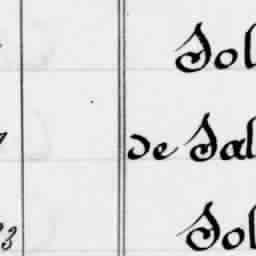 Sol
de Sal
3 Sol